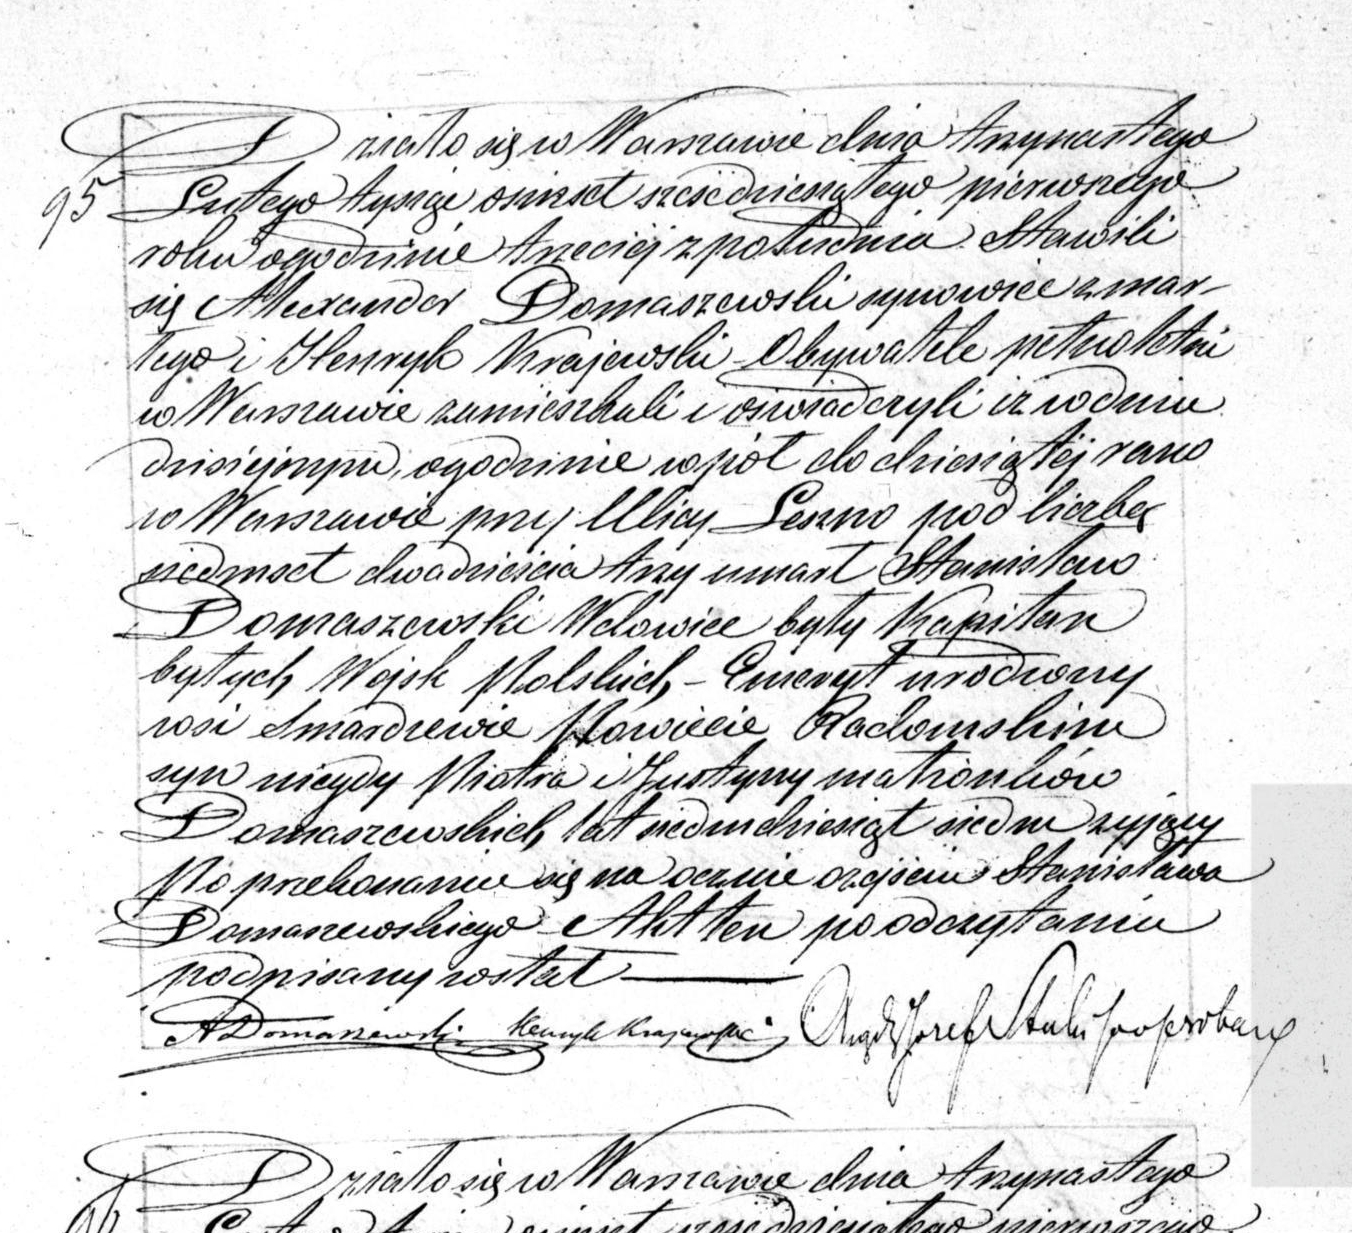 Działo się w Warszawie dnia trzynastego
95 Lutego tysiąc ośmset sześćdziesiątego pierwszego
roku ogodzinie trzeciéj z południa. Stawili
się Alexander Domaszewski synowiec zmar-
łego i Henryk Krajewski Obywatele pełnoletni
w Warszawie zamieszkali i oświadczyli iż w dniu
dzisiejszym ogodzinie wpół do dziesiątéj rano
w Warszawie przy Ulicy Leszno pod liczbą
siedmset dwadzieścia trzy umarł Stanisław
Domaszewski Wdowiec były Kapitan
byłych Wojsk Polskich, – Emeryt urodzony
wsi Smardzewie Powiecie Radomskim
syn niegdy Piotra i Justyny małżonków
Domaszewskich, lat siedmdziesiąt siedm żyjący
Po przekonaniu się na ocznie o zejściu Stanisława
Domaszewskiego Akt ten po odczytaniu
podpisany został
ADomaszewski Henryk Krajewski Józef
Działo się w Warszawie dnia trzynastego
96 Lutego tysiąc ośmset sześćdziesiątego pierwszego